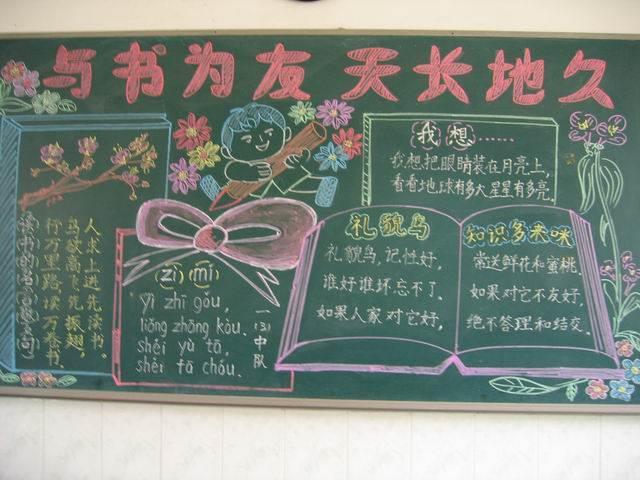 与书为友 天长地久
人求上进先读书。
鸟欲高飞先振翅，
行万里路，读万卷书.
读书的名言(警句)
(zì) (mí)
yì zhī gǒu,
liǎng zhāng kǒu.
shéi yù tā,
shéi fā chóu.
一(3)中队
我想……
我想把眼睛装在月亮上,
看看地球有多大星星有多亮.
礼貌鸟
礼貌鸟,记性好,
谁好谁坏忘不了.
如果人家对它好,
知识多来咪
常送鲜花和蜜桃.
如果对它不友好,
绝不答理和结交.